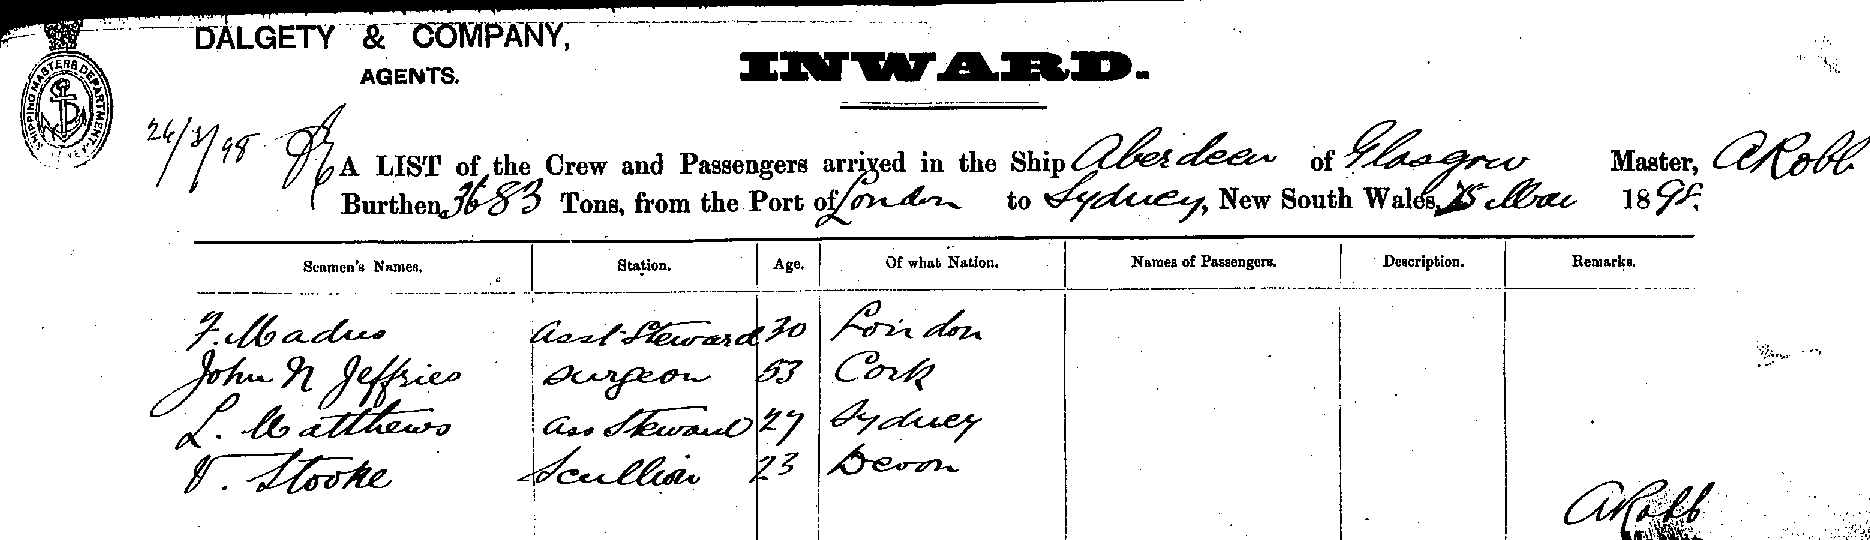 DALGETY & COMPANY,
AGENTS.
INWARD.
SHIPPING MASTERS DEPARTMENT
26/3/98
A LIST of the Crew and Passengers arrived in the Ship Aberdeen of Glasgow Master, A Robb
Burthen 3683 Tons, from the Port of London to Sydney, New South Wales, 25 Mar 1898.
Seamen's Names. Station. Age. Of what Nation. Names of Passengers. Description. Remarks.
F. Madus Asst Steward 30 London
John N Jeffries Surgeon 53 Cork
L. Matthews Ass Steward 27 Sydney
V. Stooke Scullion 23 Devon
A Robb